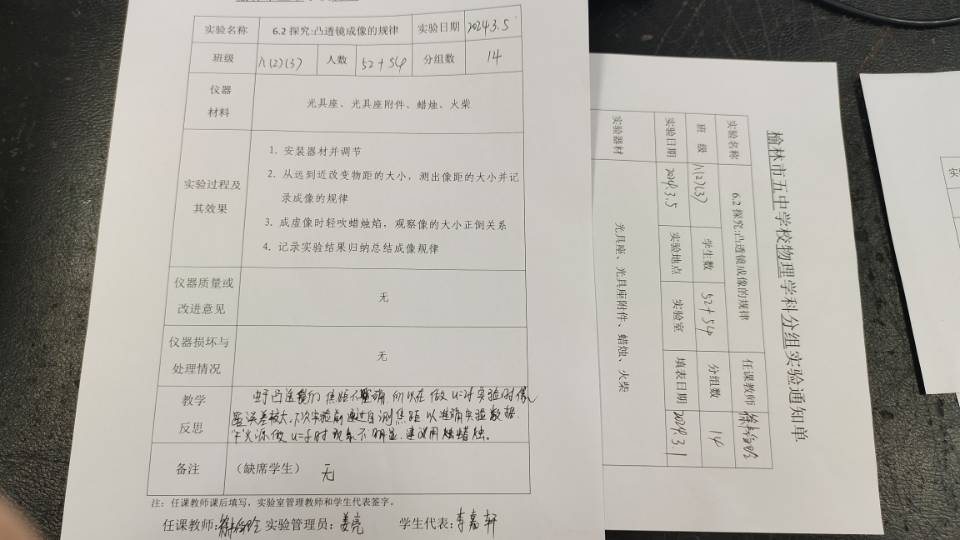 实验名称 6.2 探究:凸透镜成像的规律 实验日期 2024.3.5
班级 八(2)(3) 人数 52+54 分组数 14
仪器材料 光具座、光具座附件、蜡烛、火柴
实验过程及其效果
1. 安装器材并调节
2. 从远到近改变物距的大小，测出像距的大小并记
录成像的规律
3. 成虚像时轻吹蜡烛焰，观察像的大小正倒关系
4. 记录实验结果归纳总结成像规律
仪器质量或改进意见 无
仪器损坏与处理情况 无
教学反思
焦距不准确 所以在做 实验时像
距误差较大,下次实验前 测焦距 以 实验数据
光源做u=f时现象不明显.建议用 蜡烛。
备注 （缺席学生） 无
注：任课教师课后填写，实验室管理教师和学生代表签字。
任课教师: 实验管理员：姜亮 学生代表:李嘉轩
榆林市五中学校物理学科分组实验通知单
实验名称 6.2 探究:凸透镜成像的规律 任课教师
班级 八(2)(3) 学生数 52+54 分组数 14
实验日期 2024.3.5 实验地点 实验室 填表日期 2024.3.1
实验器材 光具座、光具座附件、蜡烛、火柴